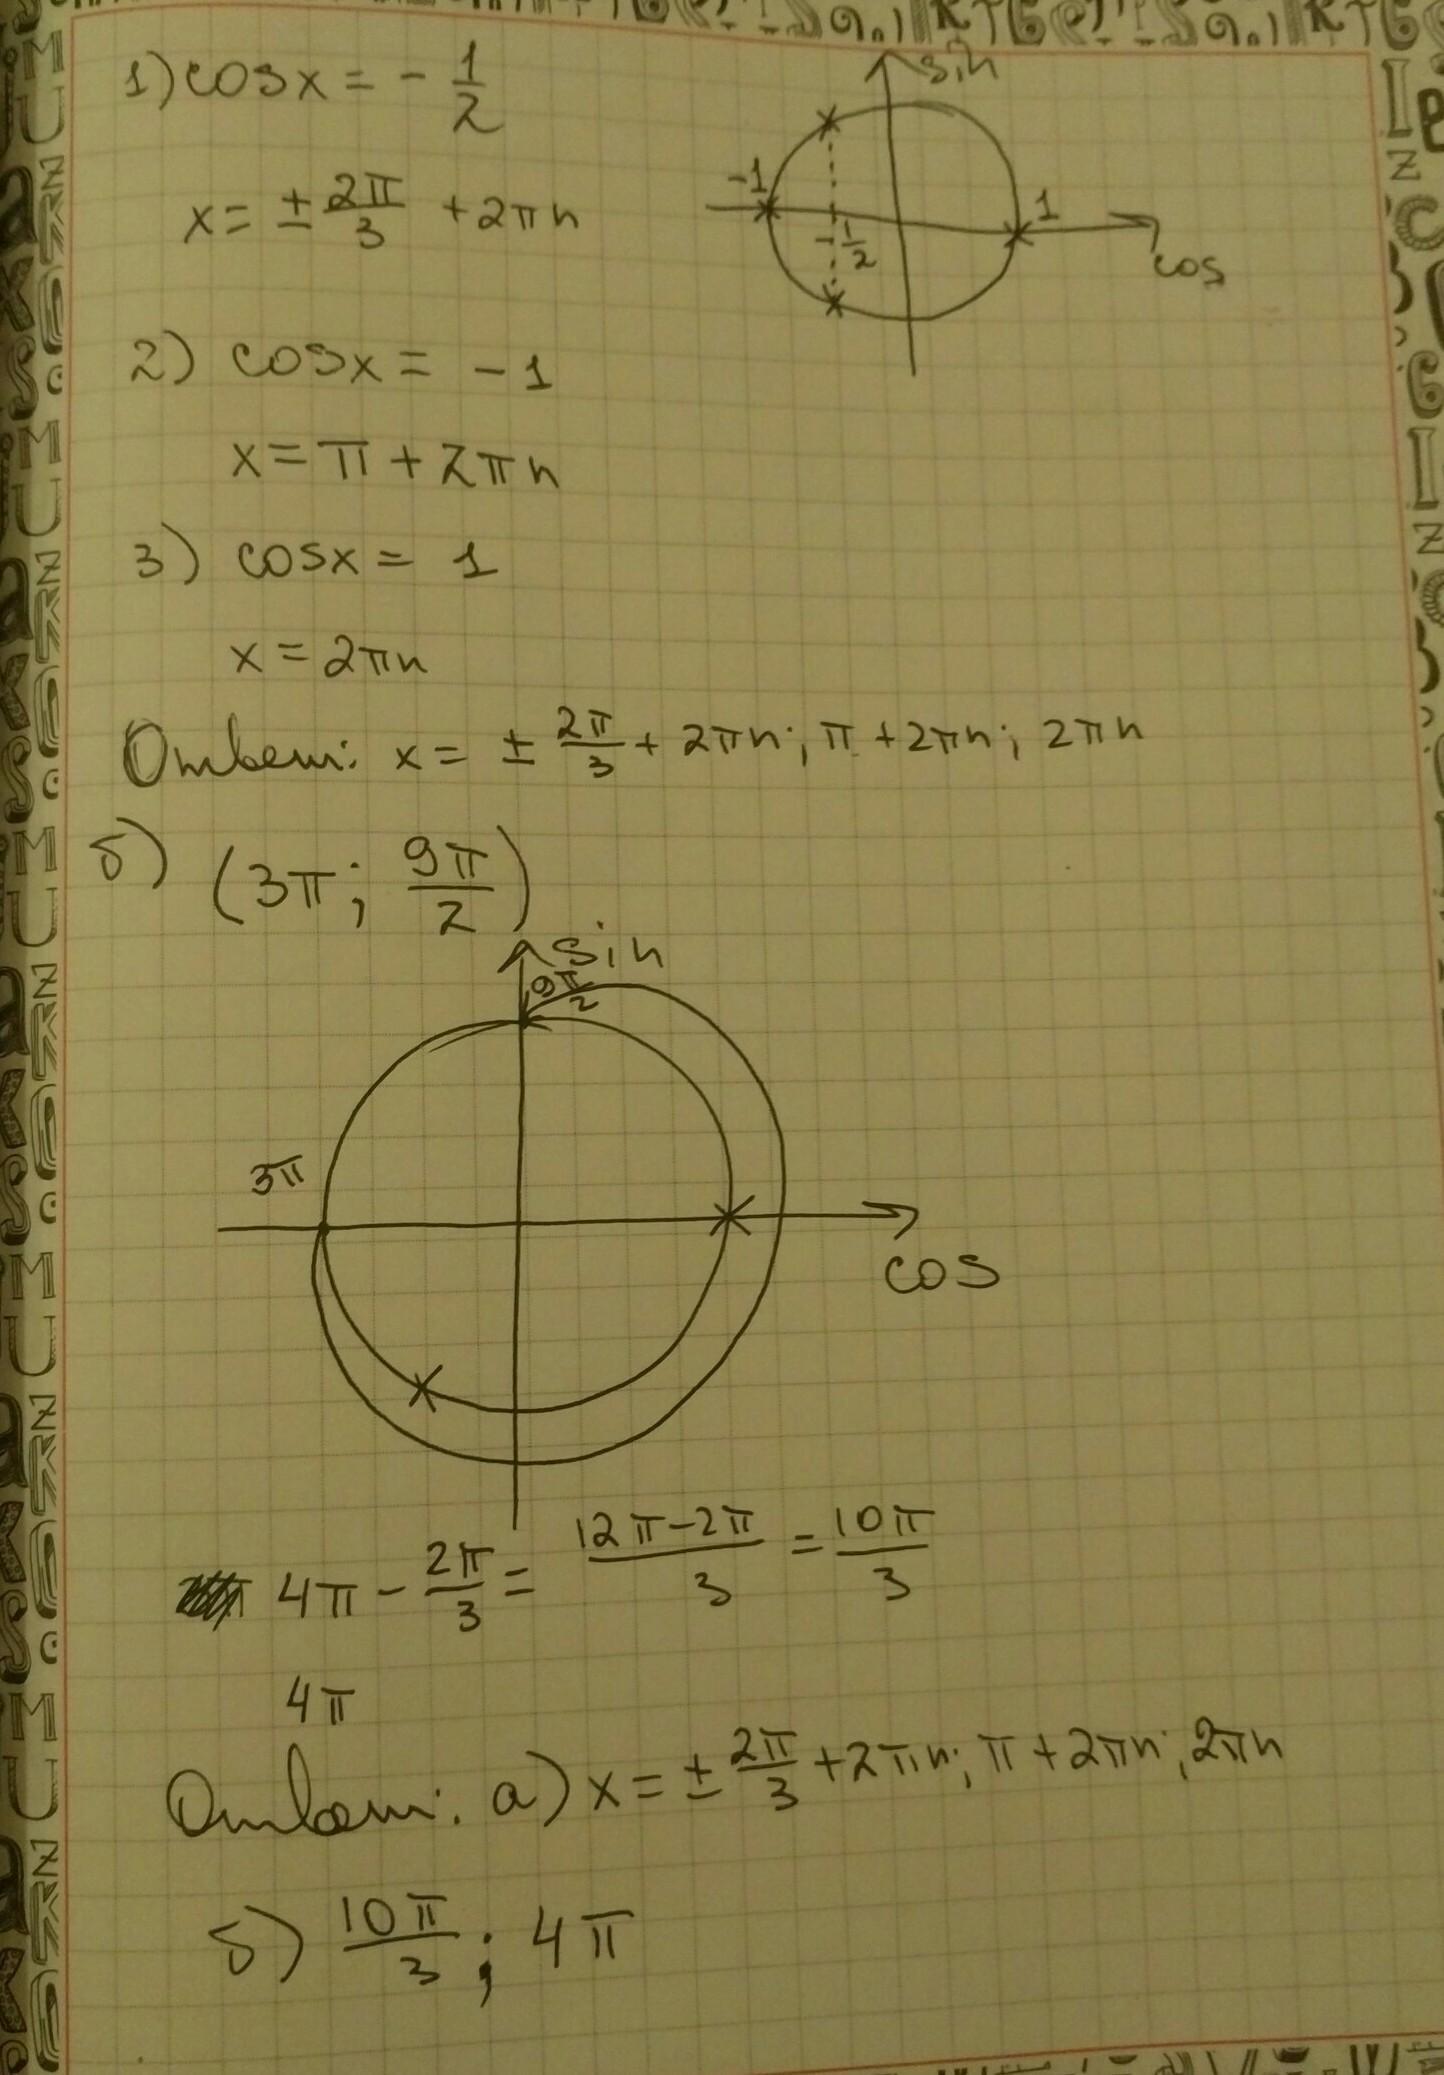 1) cosx = - 1/2
sin
x = ± 2π/3 + 2πn
-1
1
-1/2
cos
2) cosx = -1
x = π + 2πn
3) cosx = 1
x = 2πn
Ответ: x = ± 2π/3 + 2πn; π + 2πn; 2πn
б) (3π; 9π/2)
sin
9π/2
3π
cos
4π - 2π/3 = 12π-2π/3 = 10π/3
4π
Ответ: а) x = ± 2π/3 + 2πn; π + 2πn; 2πn
б) 10π/3; 4π